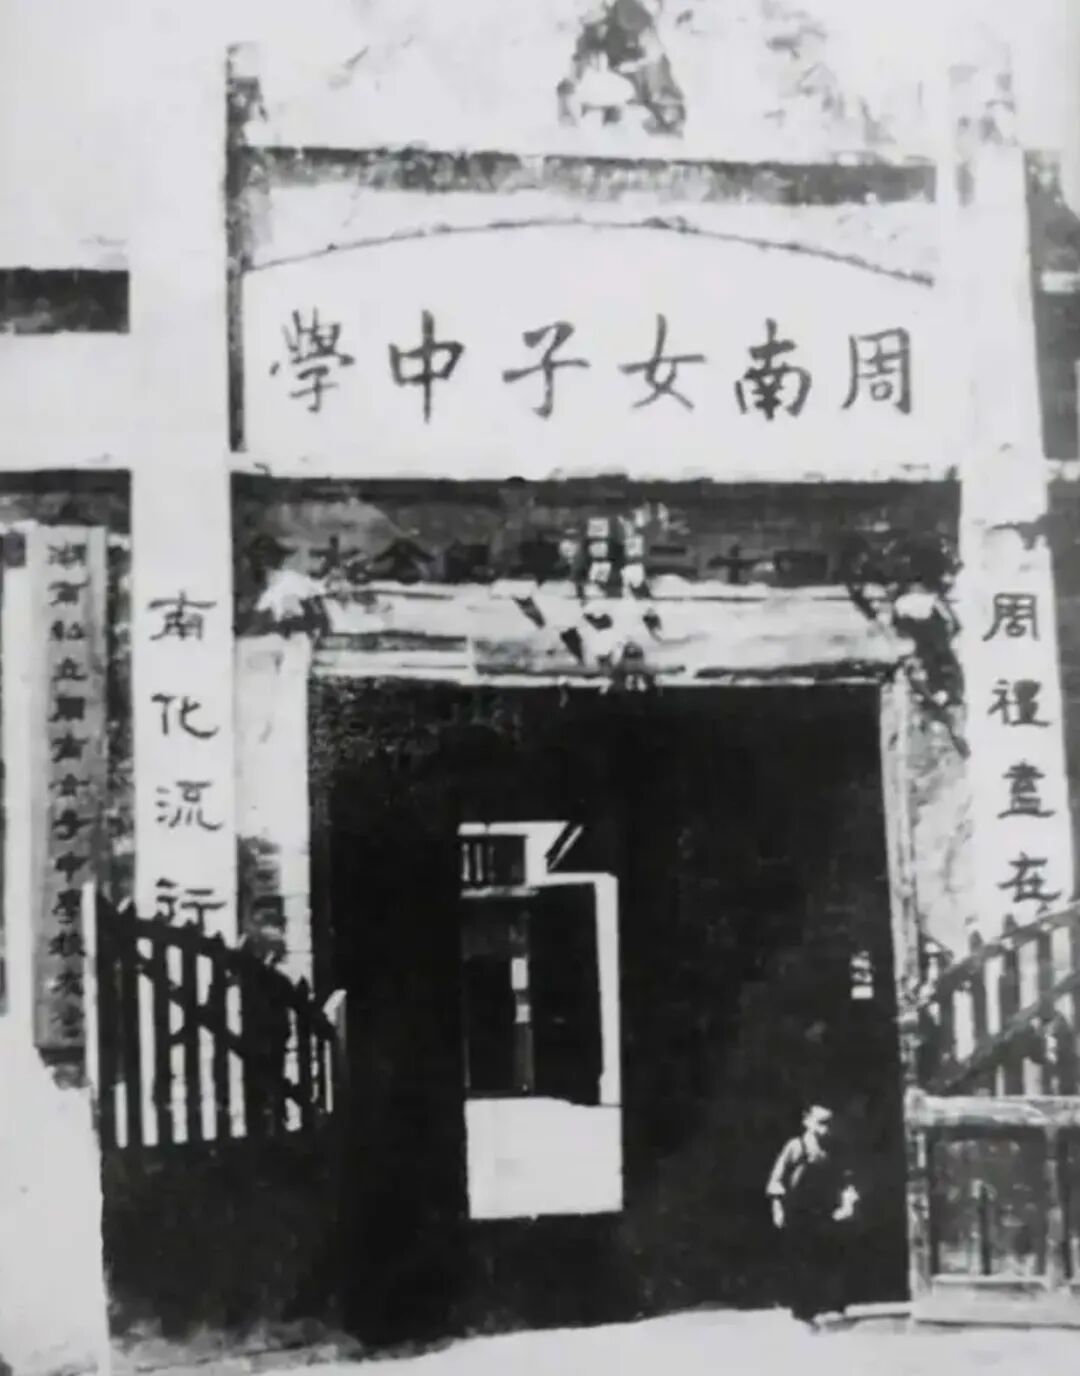 周南女子中學
周禮盡在
南化流行
湖南私立周南女子中學校友會